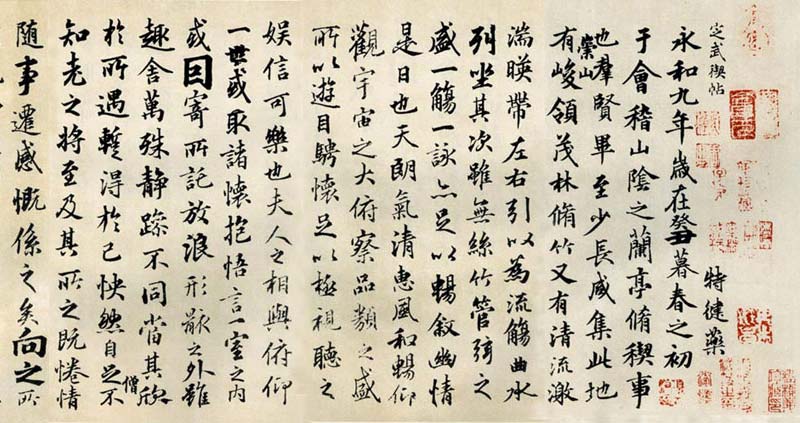 特健藥
定武禊帖
永和九年歲在癸丑暮春之初
于會稽山陰之蘭亭脩稧事
也羣賢畢至少長咸集此地
有崇山峻領茂林脩竹又有清流激
湍暎帶左右引以為流觴曲水
列坐其次雖無絲竹管弦之
盛一觴一詠亦足以暢敘幽情
是日也天朗氣清惠風和暢仰
觀宇宙之大俯察品類之盛
所以遊目騁懷足以極視聽之
娛信可樂也夫人之相與俯仰
一世或取諸懷抱悟言一室之內
或因寄所託放浪形骸之外雖
趣舍萬殊靜躁不同當其欣
於所遇暫得於己怏然自足不
僧
知老之將至及其所之既惓情
隨事遷感慨係之矣向之所